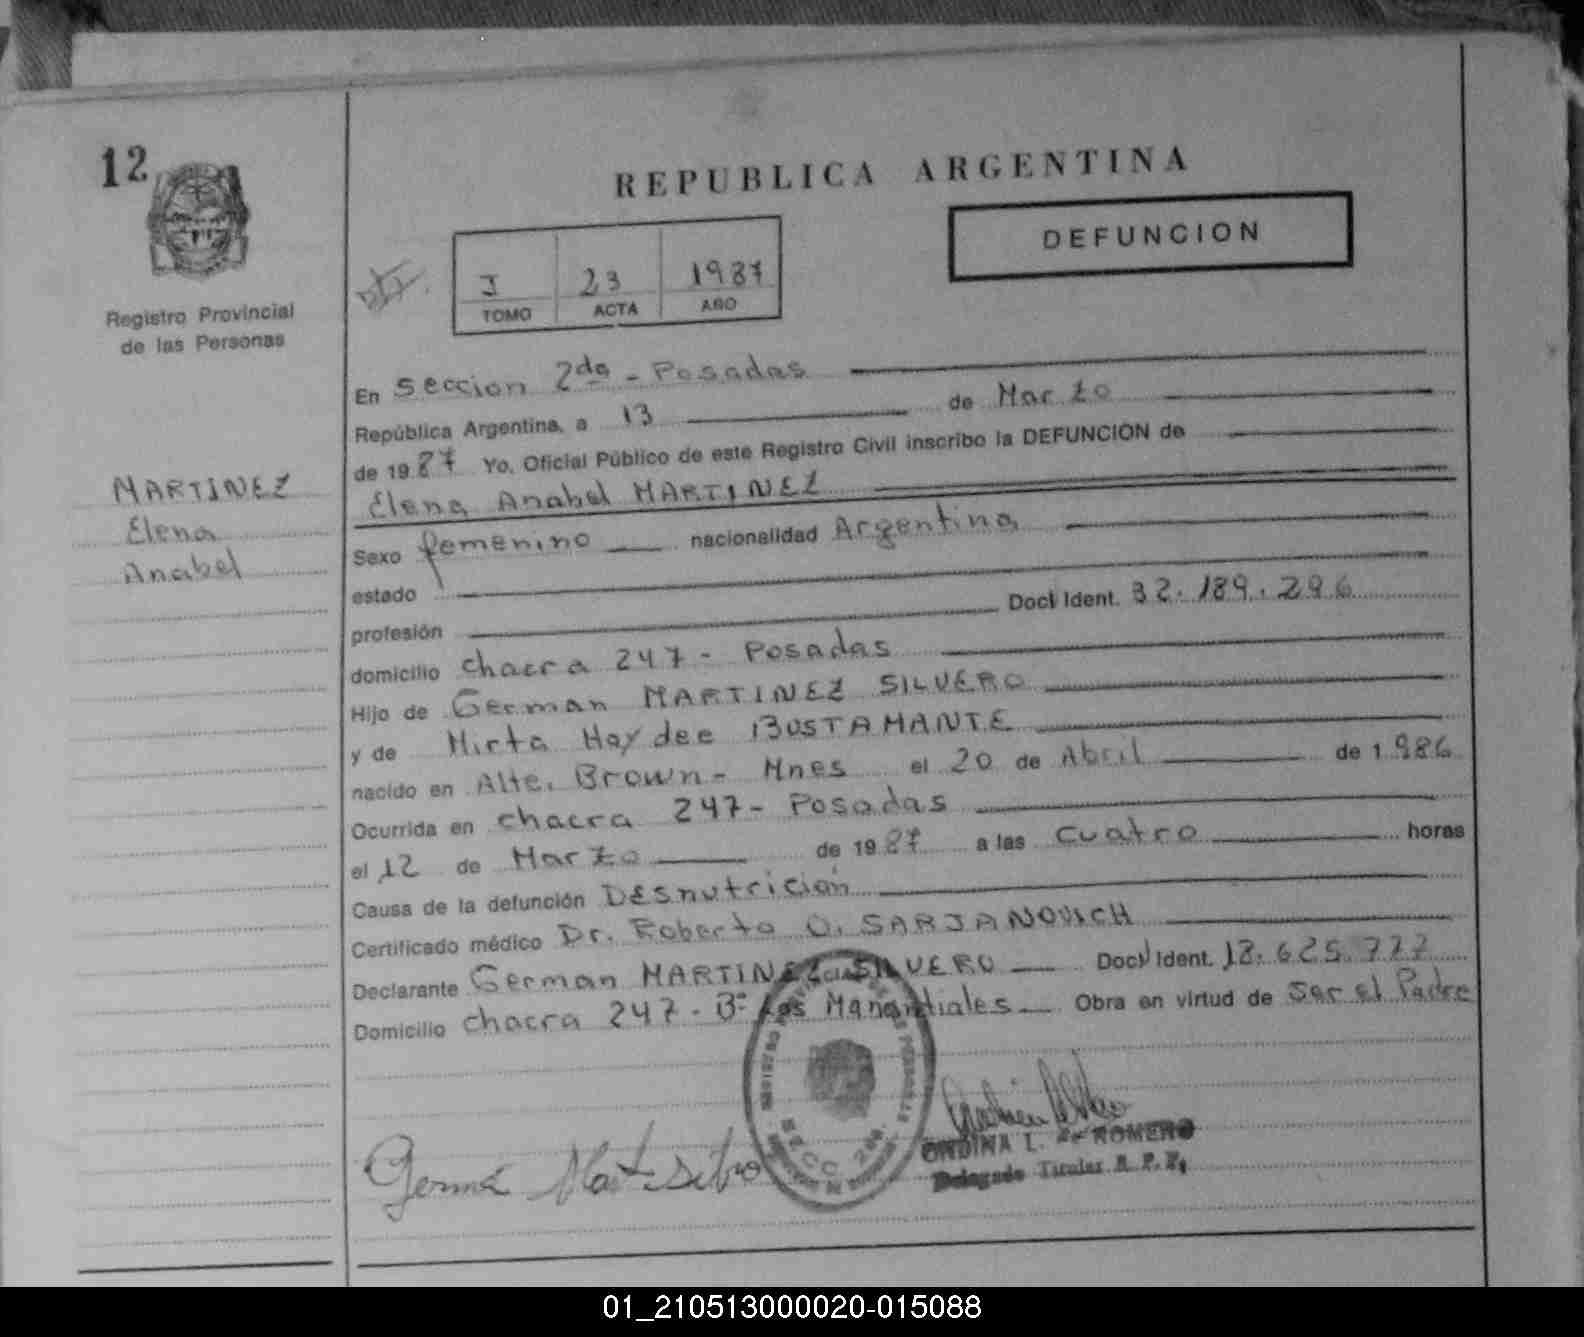 12
REPUBLICA ARGENTINA
DEFUNCION
I 23 1987
TOMO ACTA AÑO
Registro Provincial
de las Personas
MARTINEZ
Elena
Anabel
En Seccion 2da - Posadas
República Argentina, a 13 de Marzo
de 1987 Yo, Oficial Público de este Registro Civil inscribo la DEFUNCION de
Elena Anabel MARTINEZ
Sexo femenino nacionalidad Argentina
estado
profesión Doc. Ident. 32.189.296
domicilio chacra 247 - Posadas
Hijo de German MARTINEZ SILVERO
y de Mirta Haydee BUSTAMANTE
nacido en Alte. Brown - Mnes el 20 de Abril de 1.986
Ocurrida en chacra 247 - Posadas
el 12 de Marzo de 1987 a las cuatro horas
Causa de la defunción Desnutrición
Certificado médico Dr. Roberto O. SARJANOVICH
Declarante German MARTINEZ SILVERO Doc. Ident. 18.625.777
Domicilio chacra 247 - Bº Los Manantiales Obra en virtud de Ser el Padre
SECC. 2da.
ONDINA L. de ROMERO
Delegado Titular R. P. P.
01_210513000020-015088